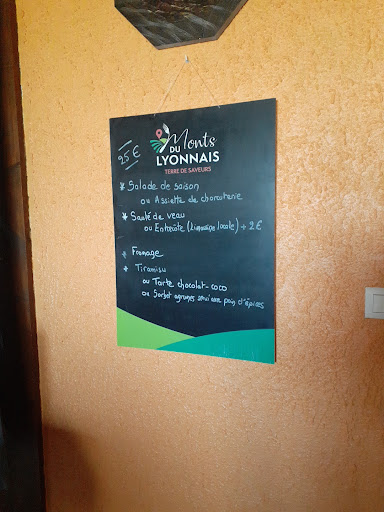 25 €
Monts
DU
LYONNAIS
TERRE DE SAVEURS
* Salade de saison
ou Assiette de charcuterie
* Sauté de veau
ou Entrecôte (Limousine locale) + 2 €
* Fromage
* Tiramisu
ou Tarte chocolat-coco
ou Sorbet agrumes servi avec pain d'épices